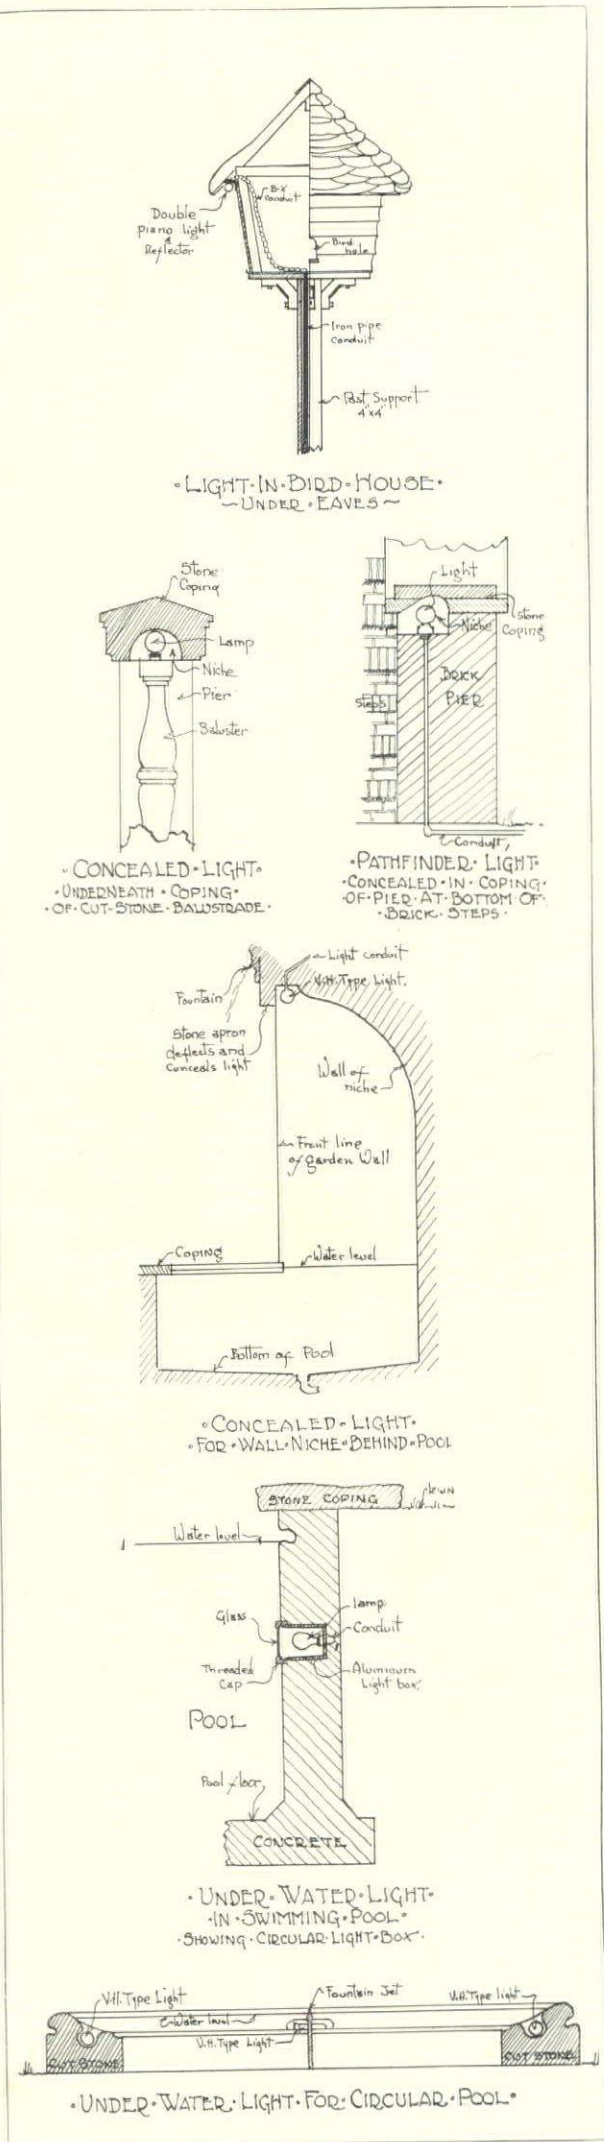 Double
piano light
&
Reflector
B-X
Conduit
Bird
hole
Iron pipe
conduit
Post Support
4"x4"
·LIGHT·IN·BIRD·HOUSE·
~UNDER·EAVES~
Stone
Coping
Lamp
A
Niche
Pier
Baluster
·CONCEALED·LIGHT·
·UNDERNEATH·COPING·
·OF·CUT·STONE·BALUSTRADE·
Light
Stone
Coping
Niche
BRICK
PIER
Steps
Conduit,
·PATHFINDER LIGHT·
·CONCEALED·IN·COPING·
·OF·PIER·AT·BOTTOM·OF·
·BRICK·STEPS·
Light conduit
V.H. Type Light.
Fountain
Stone apron
deflects and
Conceals light
Wall of
niche
Front line
of garden Wall
Coping
Water level
Bottom of Pool
·CONCEALED·LIGHT·
·FOR·WALL·NICHE·BEHIND·POOL
STONE COPING
Lawn
Water level
Glass
Lamp
Conduit
Threaded
Cap
Aluminum
Light box.
POOL
Pool floor,
CONCRETE
·UNDER·WATER·LIGHT·
·IN·SWIMMING·POOL·
·SHOWING·CIRCULAR·LIGHT·BOX·
V.H. Type Light
Fountain Jet
V.H. Type light
Water level
V.H. Type Light
CUT STONE
CUT STONE
·UNDER·WATER·LIGHT·FOR·CIRCULAR·POOL·